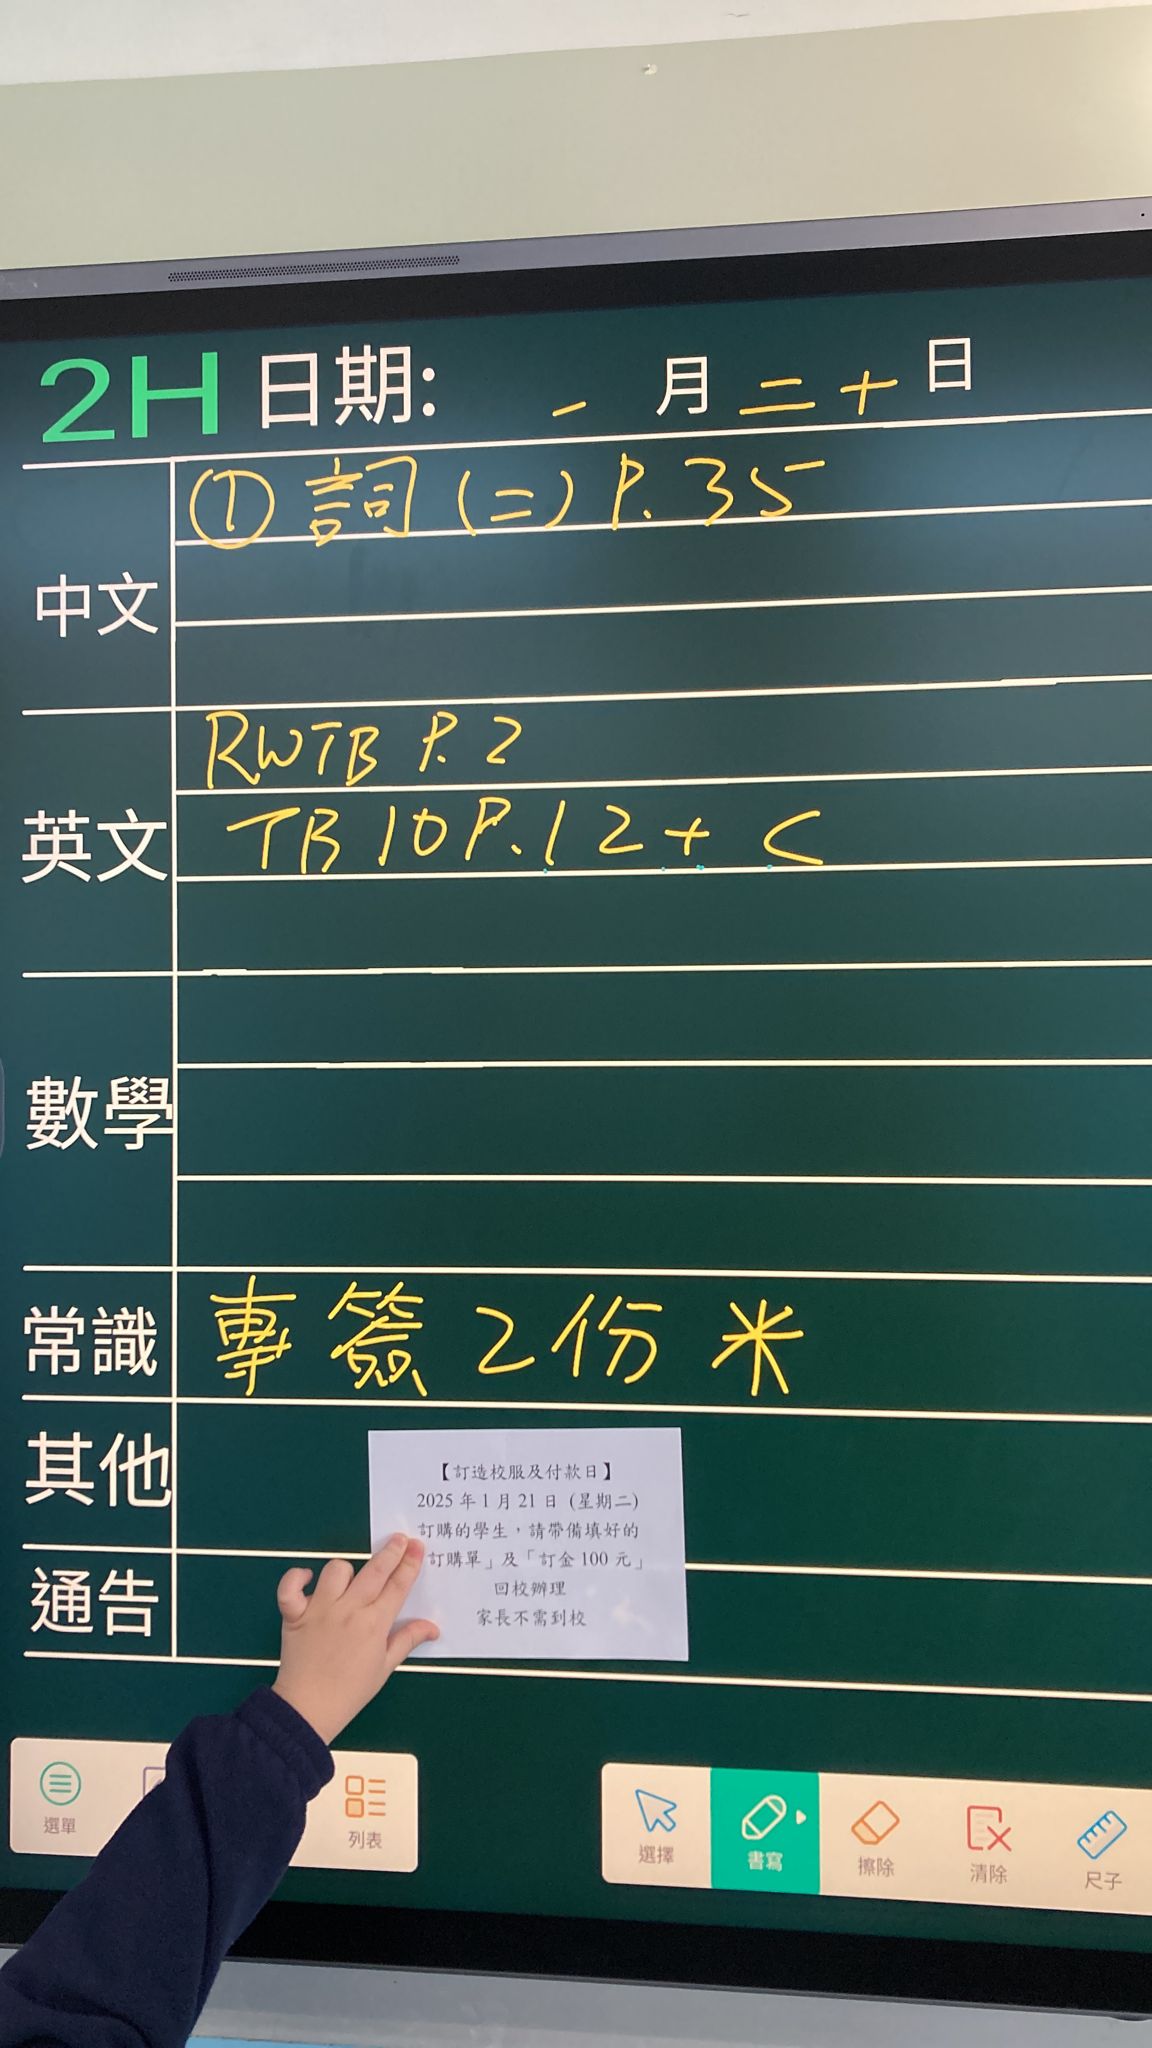 2H 日期: 一 月 二十 日
中文
① 詞(二) P.35
英文
RWTB P.2
TB 10 P.12 + C
數學
常識
專簽2份 米
其他
通告
【訂造校服及付款日】
2025 年 1 月 21 日 (星期二)
訂購的學生，請帶備填好的
訂購單」及「訂金 100 元」
回校辦理
家長不需到校
選單
列表
選擇
書寫
擦除
清除
尺子